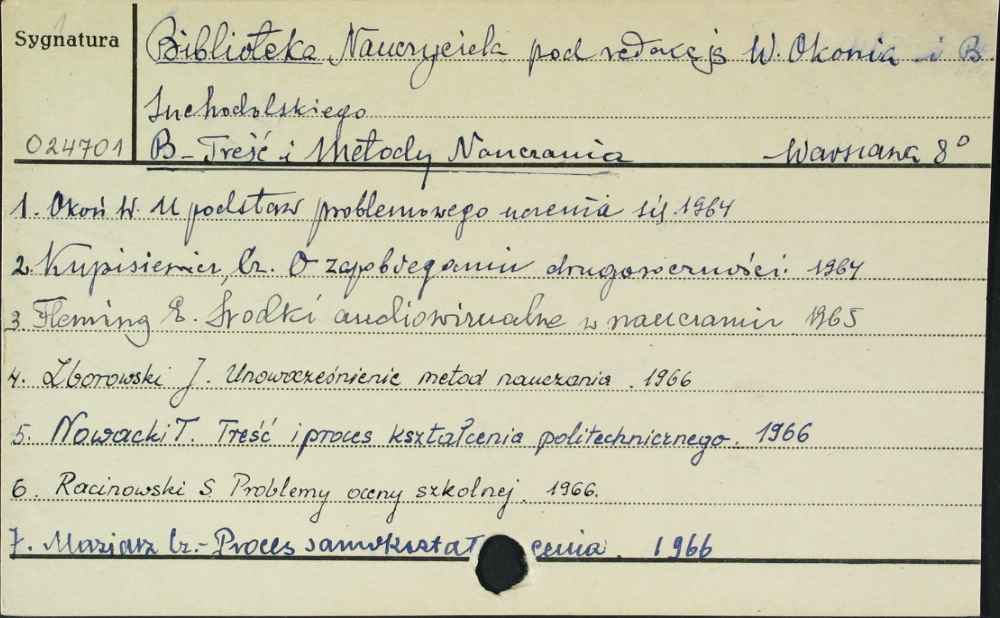 Sygnatura
Biblioteka Nauczyciela pod redakcją W. Okonia i B.
Suchodolskiego
024701
B – Treść i Metody Nauczania – Warszawa 8°
1. Okoń W. U podstaw problemowego uczenia się 1964
2. Kupisiewicz Cz. O zapobieganiu drugoroczności. 1964
3. Fleming E. Środki audiowizualne w nauczaniu 1965
4. Zborowski J. Unowocześnienie metod nauczania. 1966
5. Nowacki T. Treść i proces kształcenia politechnicznego. 1966
6. Racinowski S Problemy oceny szkolnej. 1966.
7. Maziarz Cz. – Proces samokształcenia. 1966